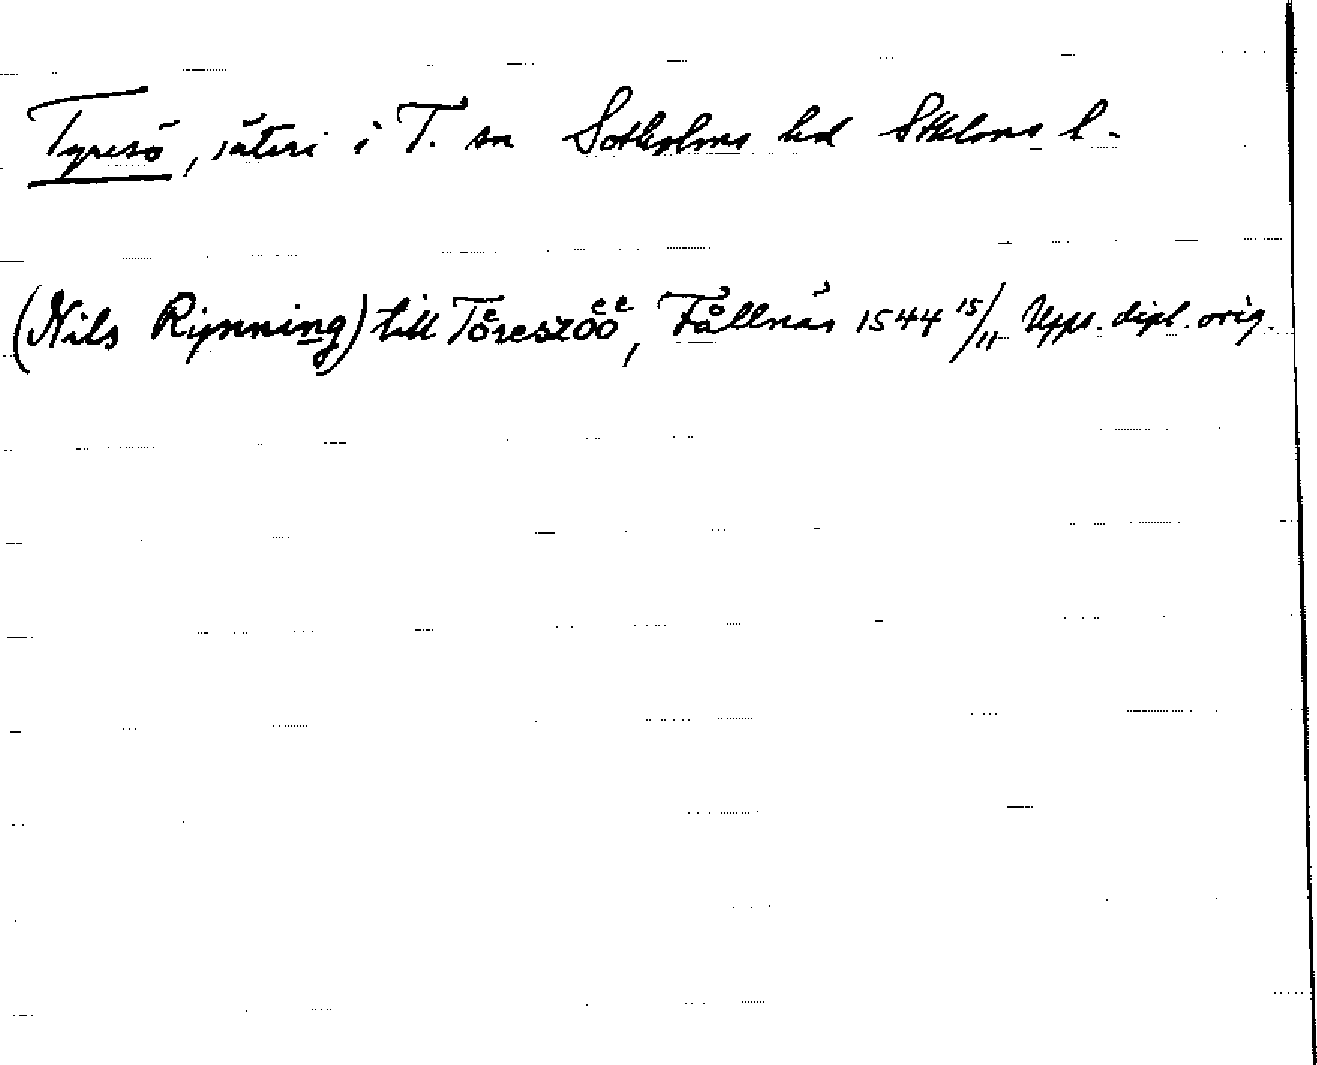 Tyresö, säteri i T. sn Sotholms hd Sthlms l.
(Nils Rynning) till Töͤreszöͤöͤ, Fållnäs 1544 15/11 Upps. dipl. orig.